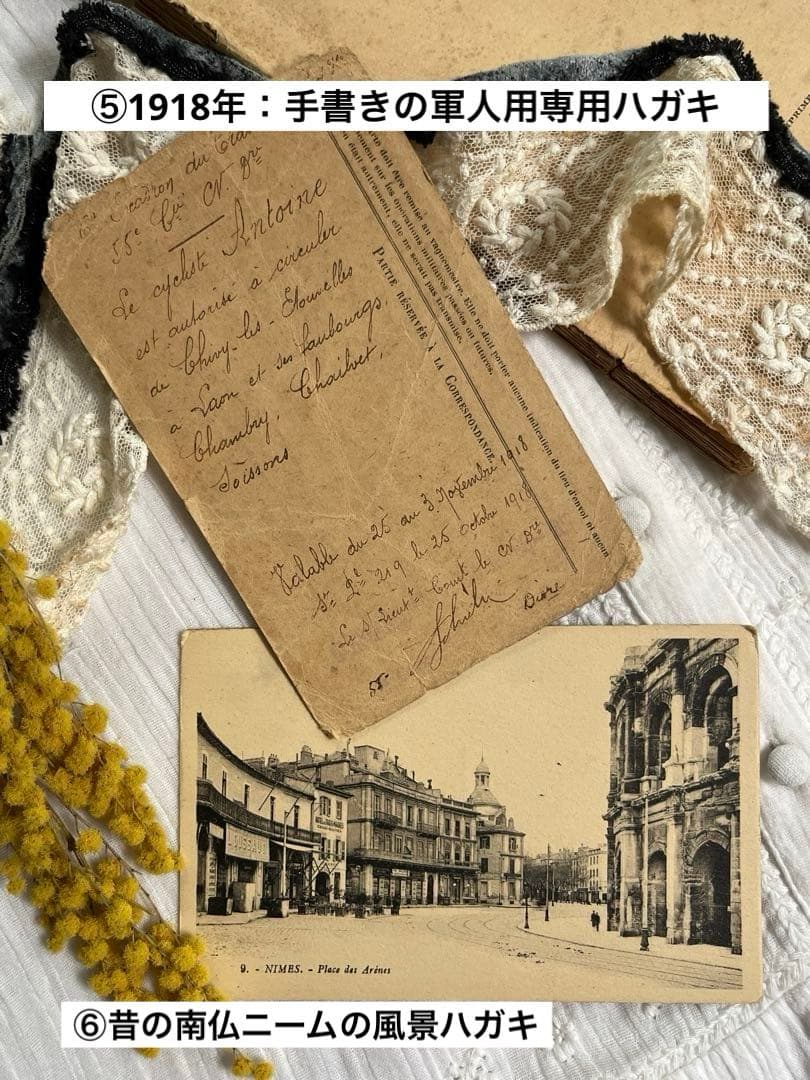 ⑤1918年：手書きの軍人用専用ハガキ
55e Cie CN. Dre
Le cycliste Antoine
est autorisé à circuler
de Chivy-les-Etouvelles
à Laon et ses faubourgs,
Chambry, Chailvet,
Soissons
Valable du 25 au 3 Novembre 1918
219 le 25 Octobre 1918
Le St Lieutt Comt le CN Dre
doit être remise au vaguemestre. Elle ne doit porter aucune indication du lieu d'envoi ni aucun
sur les opérations militaires passées ou futures.
était autrement, elle ne serait pas transmise.
PARTIE RÉSERVÉE A LA CORRESPONDANCE
9. - NIMES. - Place des Arènes
⑥昔の南仏ニームの風景ハガキ